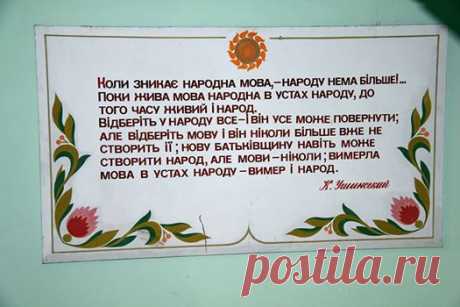 Коли зникає народна мова,– народу нема більше!...
Поки жива мова народна в устах народу, до
того часу живий і народ.
Відберіть у народу все – і він усе може повернути;
але відберіть мову і він ніколи більше вже не
створить її; нову батьківщину навіть може
створити народ, але мови – ніколи; вимерла
мова в устах народу – вимер і народ.
К. Ушинский
postila.ru